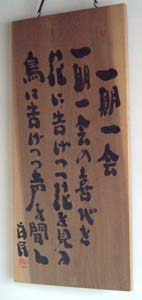 一期一会
一期一会の喜びを
花に告げつつ花を見
鳥に告げつつ声を聞く